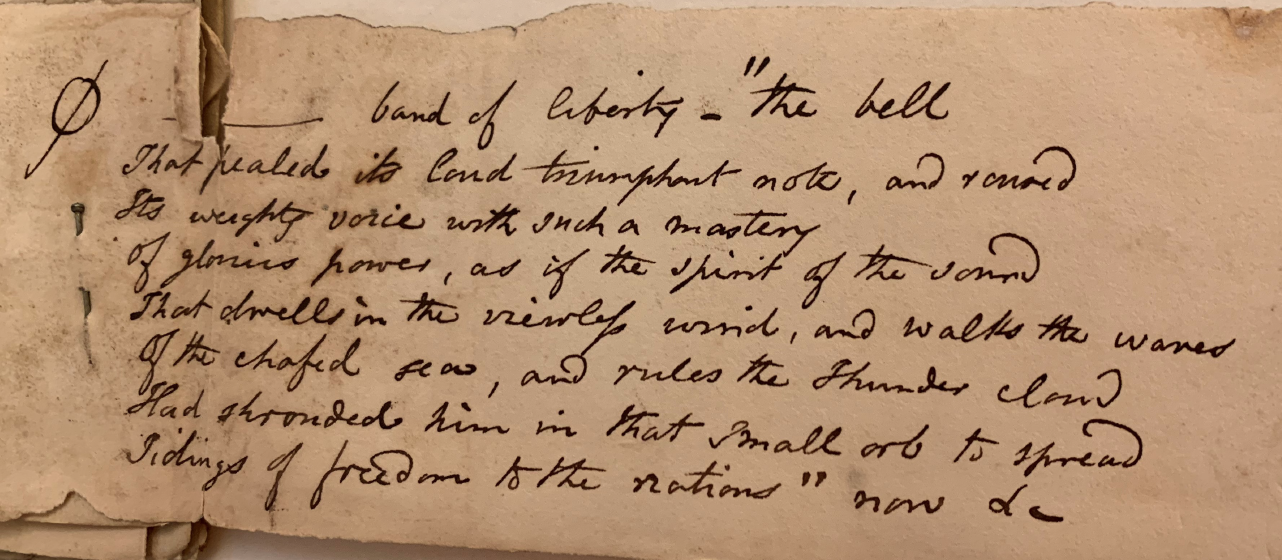 Ø —— band of liberty - "the bell
That pealed its loud triumphant note, and roused
Its weighty voice with such a mastery
Of glorius power, as if the spirit of the sound
That dwells in the viewless wind, and walks the waves
Of the chafed sea, and rules the Thunder cloud
Had shrouded him in that small orb to spread
Tidings of freedom to the nations" now &c